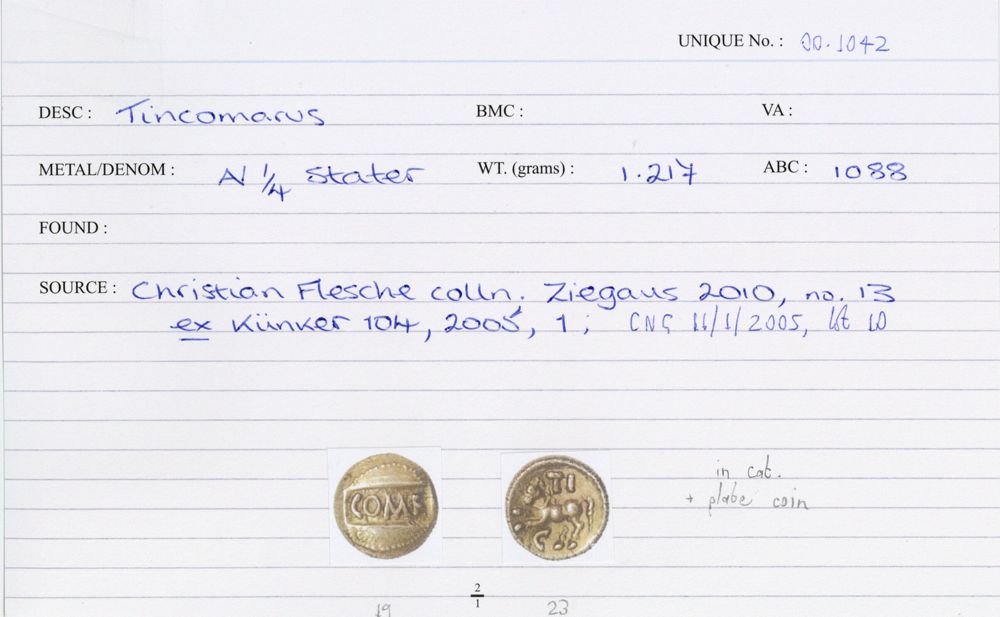 UNIQUE No. : 00.1042
DESC : Tincomarus BMC : VA :
METAL/DENOM : AV 1/4 stater WT. (grams) : 1.217 ABC : 1088
FOUND :
SOURCE : Christian Flesche colln. Ziegaus 2010, no. 13
ex Künker 104, 2005, 1; CNG 11/1/2005, lot 10
COMF
TI
C
in cat.
+ plate coin
2/1
19 23